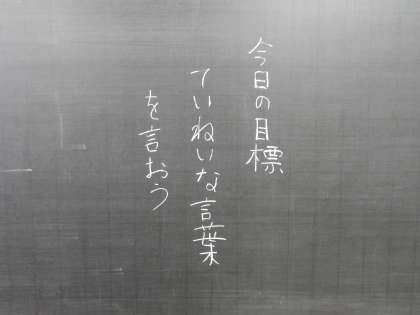 今日の目標
ていねいな言葉
を言おう